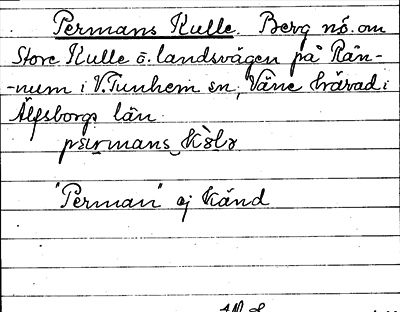 Permans Kulle. Berg nö. om
Store Kulle ö. landsvägen på Rän-
-num i V. Tunhem sn, Väne härad i
Älfsborgs län.
pærmans kòlə
"Perman" ej känd